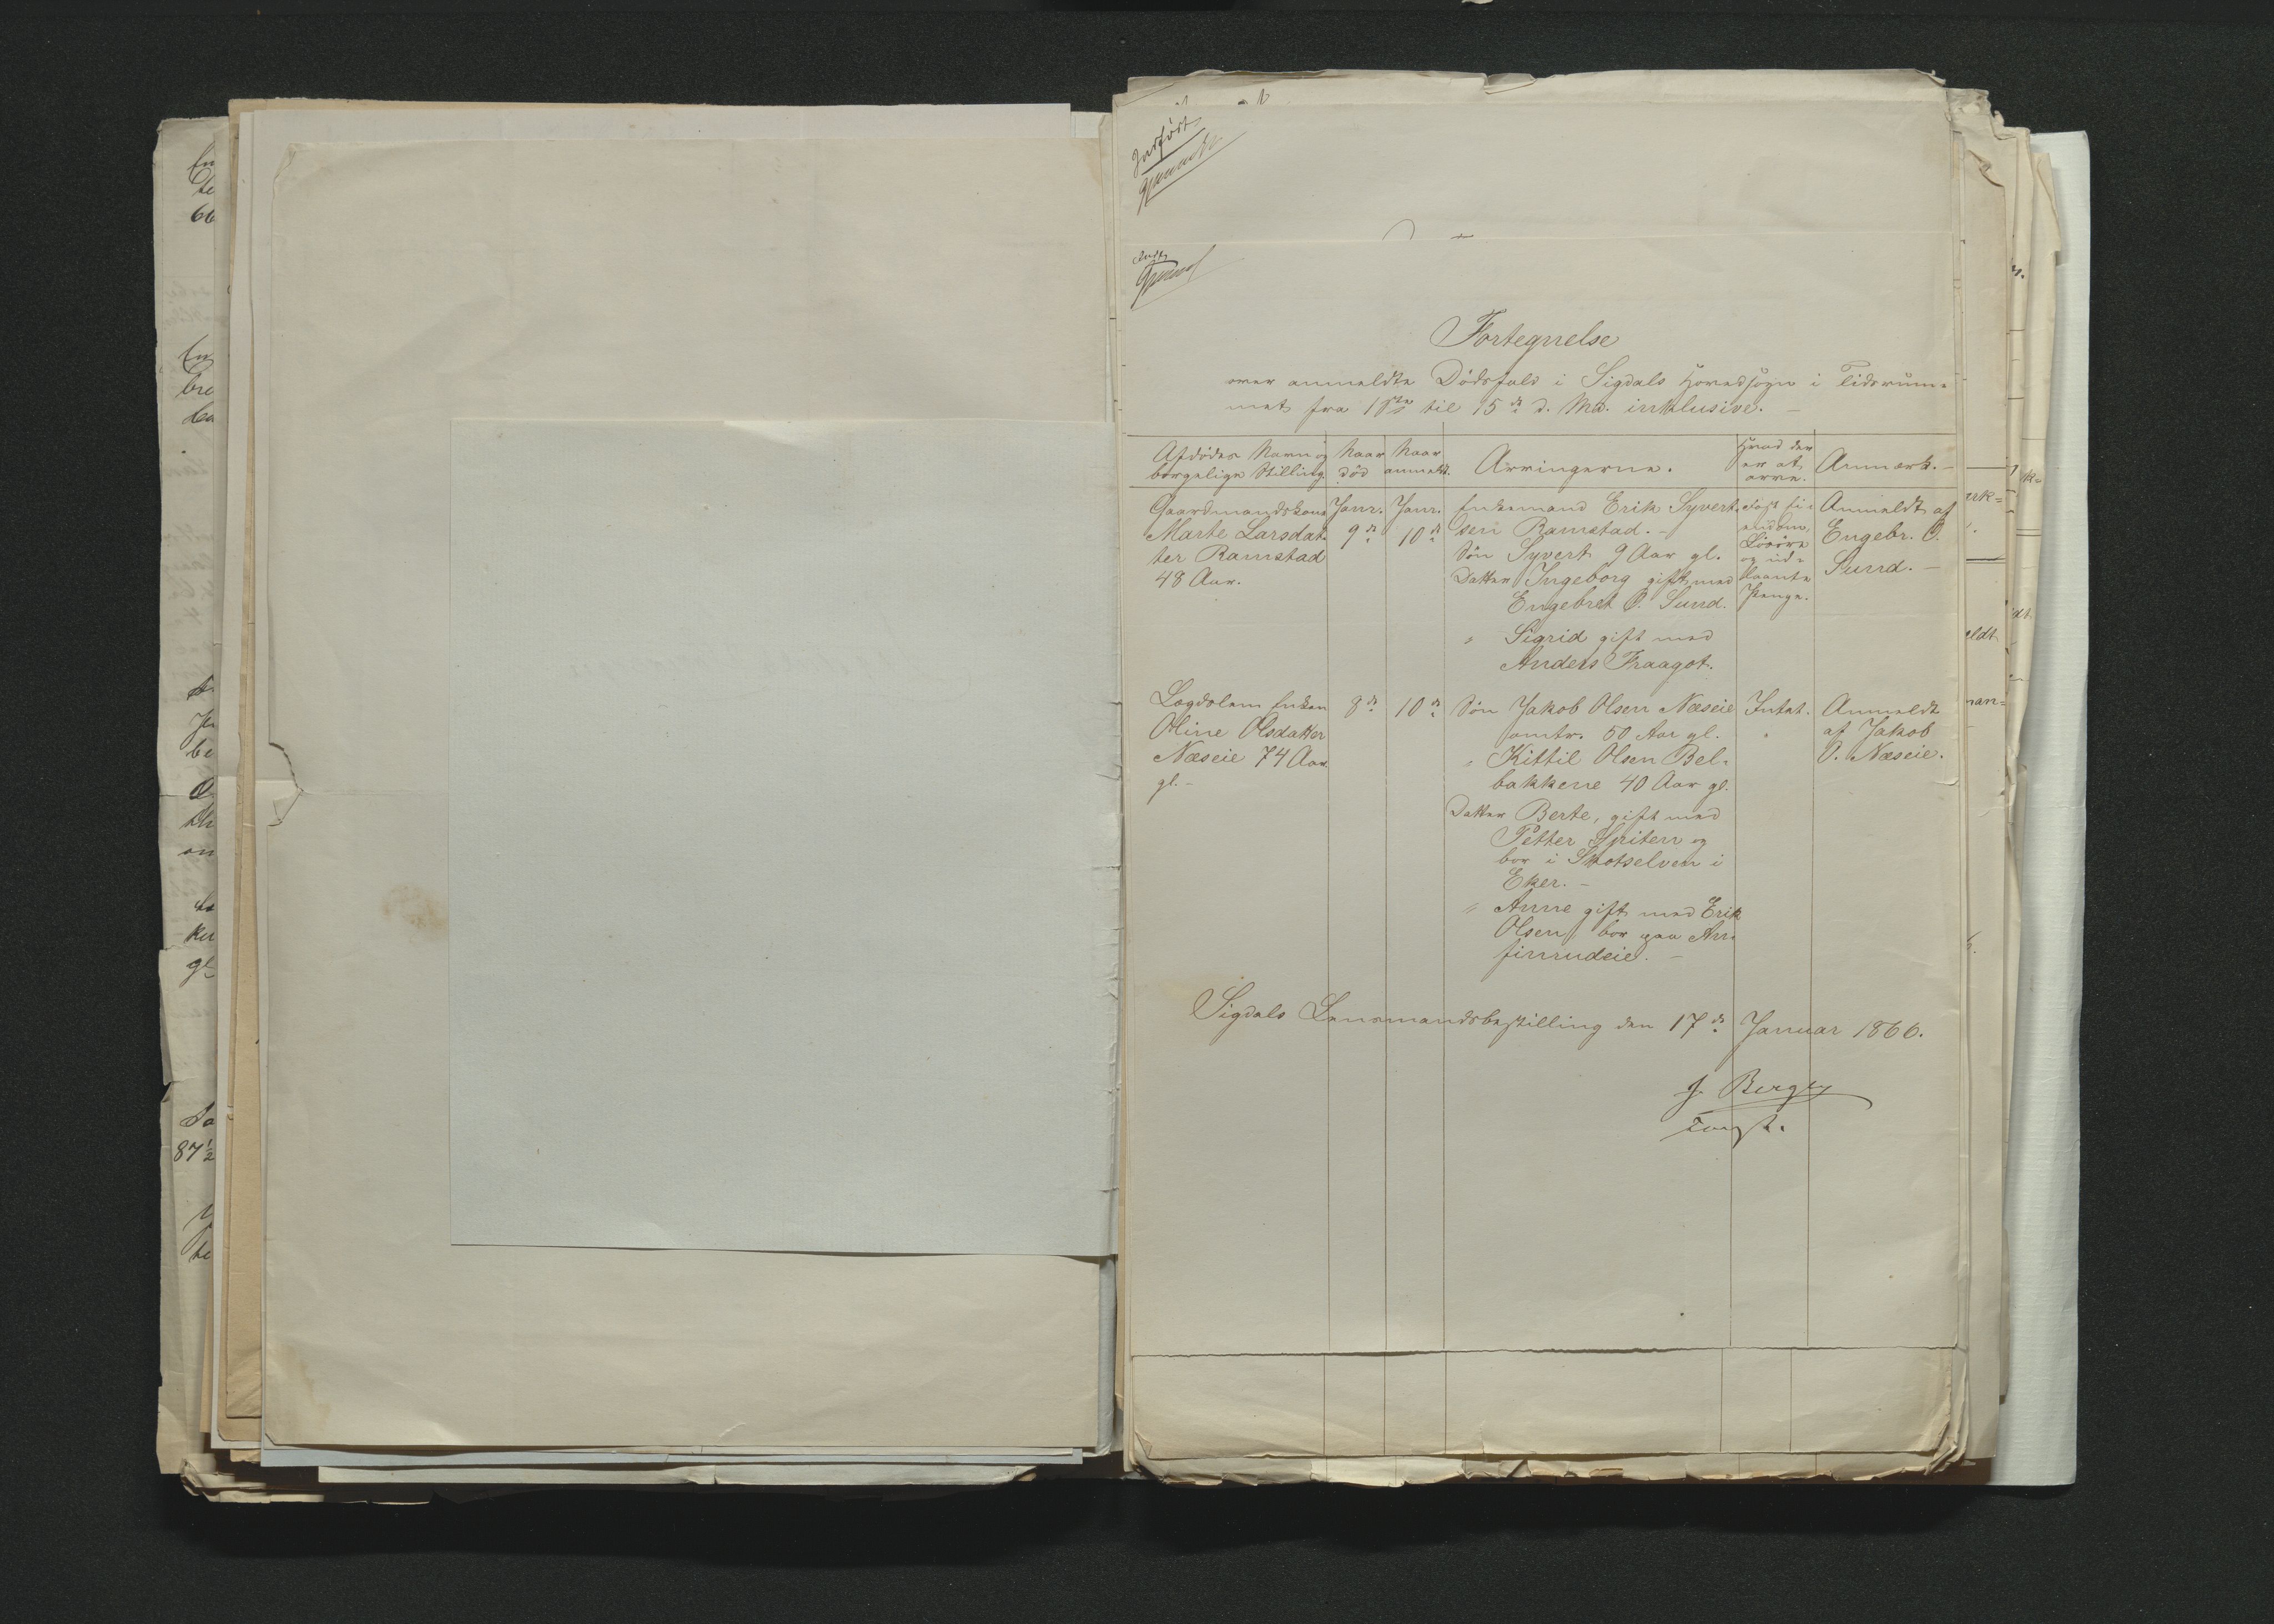 Indført
Fortegnelse
over anmeldte Dødsfald i Sigdals Hovedsogn i Tidsrum-
met fra 1ste til 15de d. Md. inklusive. -
Afdødes Navn og borgelige Stilling.
Naar død
Naar anmeldt.
Arvingerne.
Hvad der er at arve.
Anmærk. -
Gaardmandskone
Marte Larsdat-
ter Ramstad
48 Aar.
Janr.
9de
Janr.
10de
Enkemand Erik Syvert-
sen Ramstad. -
Søn Syvert 9 Aar gl.
Datter Ingeborg gift med
Engebret O. Sund.
" Sigrid gift med
Anders Fraagot.
Fast Ei-
endom,
Løsøre
og ud-
laante
Penge.
Anmeldt af
Engebr. O.
Sund. -
Lægdslem Enken
Oline Olsdatter
Næseie 74 Aar
gl. -
8de
10de
Søn Jakob Olsen Næseie
omtr. 50 Aar gl.
" Kittil Olsen Bel-
bakkene 40 Aar gl.
Datter Berte, gift med
Petter Spriten og
bor i Skotselven i
Eker. -
" Anne gift med Erik
Olsen, bor paa An-
finrudeie. -
Intet.
Anmeldt
af Jakob
O. Næseie.
Sigdals Lensmandsbestilling den 17de Januar 1866.
J. Berge
const.